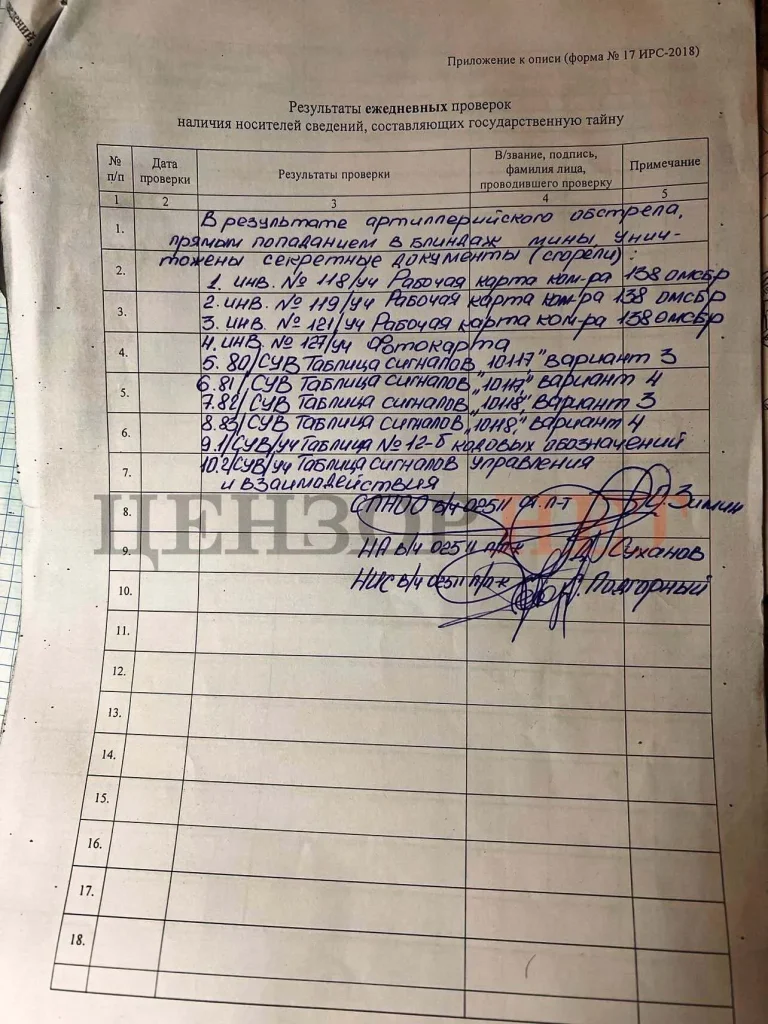 Приложение к описи (форма № 17 ИРС-2018)
Результаты ежедневных проверок
наличия носителей сведений, составляющих государственную тайну
№ п/п
Дата проверки
Результаты проверки
В/звание, подпись, фамилия лица, проводившего проверку
Примечание
1 2 3 4 5
1. В результате артиллерийского обстрела,
прямым попаданием в блиндаж мины, унич-
тожены секретные документы (сгорели):
2. 1. инв. № 118/уч Рабочая карта ком-ра 138 омсбр
2. инв. № 119/уч Рабочая карта ком-ра 138 омсбр
3. 3. инв. № 121/уч Рабочая карта ком-ра 138 омсбр
4. инв. № 127/уч Фотокарта
4. 5. 80/СУВ Таблица сигналов „10117" вариант 3
6. 81/СУВ Таблица сигналов „10117" вариант 4
5. 7. 82/СУВ Таблица сигналов „10118" вариант 3
8. 83/СУВ Таблица сигналов „10118" вариант 4
6. 9. 1/СУВ/уч Таблица № 12-б кодовых обозначений
10. 2/СУВ/уч Таблица сигналов управления
7. и взаимодействия
8. СПНОО в/ч 02511 ст. л-т Зимин
9. НА в/ч 02511 п/п-к Суханов
10. НИС в/ч 02511 п/п-к Подгорный
11.
12.
13.
14.
15.
16.
17.
18.
ЦЕНЗОР НЕТ